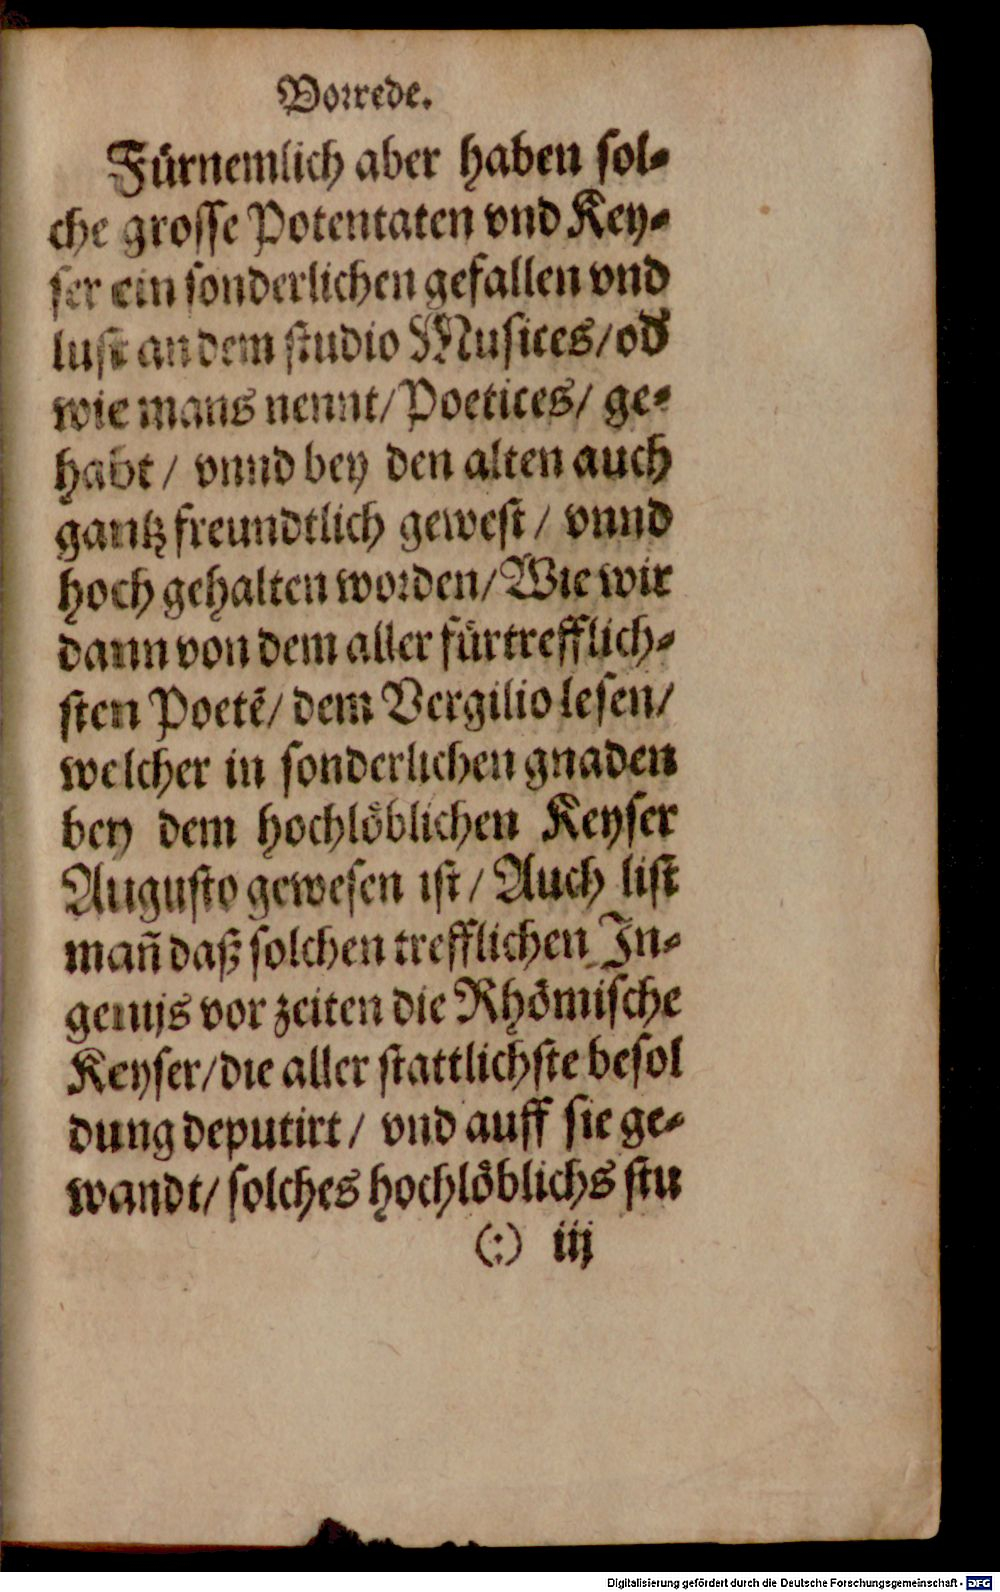 Vorrede.
Fürnemlich aber haben sol-
che grosse Potentaten vnd Key-
ser ein sonderlichen gefallen vnd
lust an dem studio Musices/ od'
wie mans nennt/ Poetices/ ge-
habt/ vnnd bey den alten auch
gantz freundtlich gewest/ vnnd
hoch gehalten worden/ Wie wir
dann von dem aller fürtrefflich-
sten Poetē/ dem Vergilio lesen/
welcher in sonderlichen gnaden
bey dem hochlöblichen Keyser
Augusto gewesen ist/ Auch list
mañ daß solchen trefflichen In-
genijs vor zeiten die Rhömische
Keyser/ die aller stattlichste besol
dung deputirt/ vnd auff sie ge-
wandt/ solches hochlöblichs stu
(:) iij
Digitalisierung gefördert durch die Deutsche Forschungsgemeinschaft - DFG